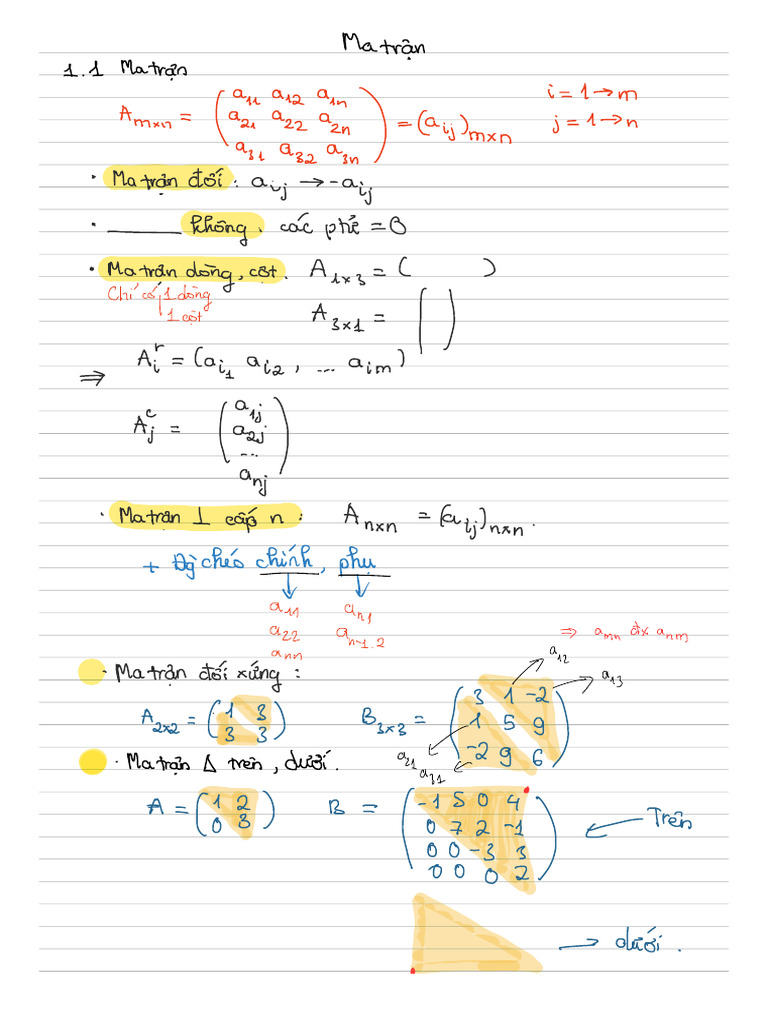 Ma trận
1.1 Ma trận
A m×n = ( a11 a12 a1n
a21 a22 a2n
a31 a32 a3n ) = (aij)m×n
i = 1 → m
j = 1 → n
· Ma trận đối : aij → -aij
· ______ không. các phtử = 0
· Ma trận dòng, cột. A1×3 = ( )
Chỉ có 1 dòng
1 cột
A3×1 = ( )
⇒ Aᵢʳ = (ai1 ai2 , ... aim)
Aⱼᶜ = ( a1j
a2j
...
anj )
· Ma trận ⊥ cấp n : An×n = (aij)n×n.
+ Đg chéo chính, phụ
↓ ↓
a11 an1
a22 an-1.2
ann
⇒ amn đx anm
· Ma trận đối xứng :
a12
a13
A2×2 = ( 1 3
3 3 )
B3×3 = ( 3 1 -2
1 5 9
-2 9 6 )
a21
a31
· Ma trận Δ trên, dưới.
A = ( 1 2
0 3 )
B = ( -1 5 0 4
0 7 2 -1
0 0 -3 3
0 0 0 2 )
← Trên
→ dưới.